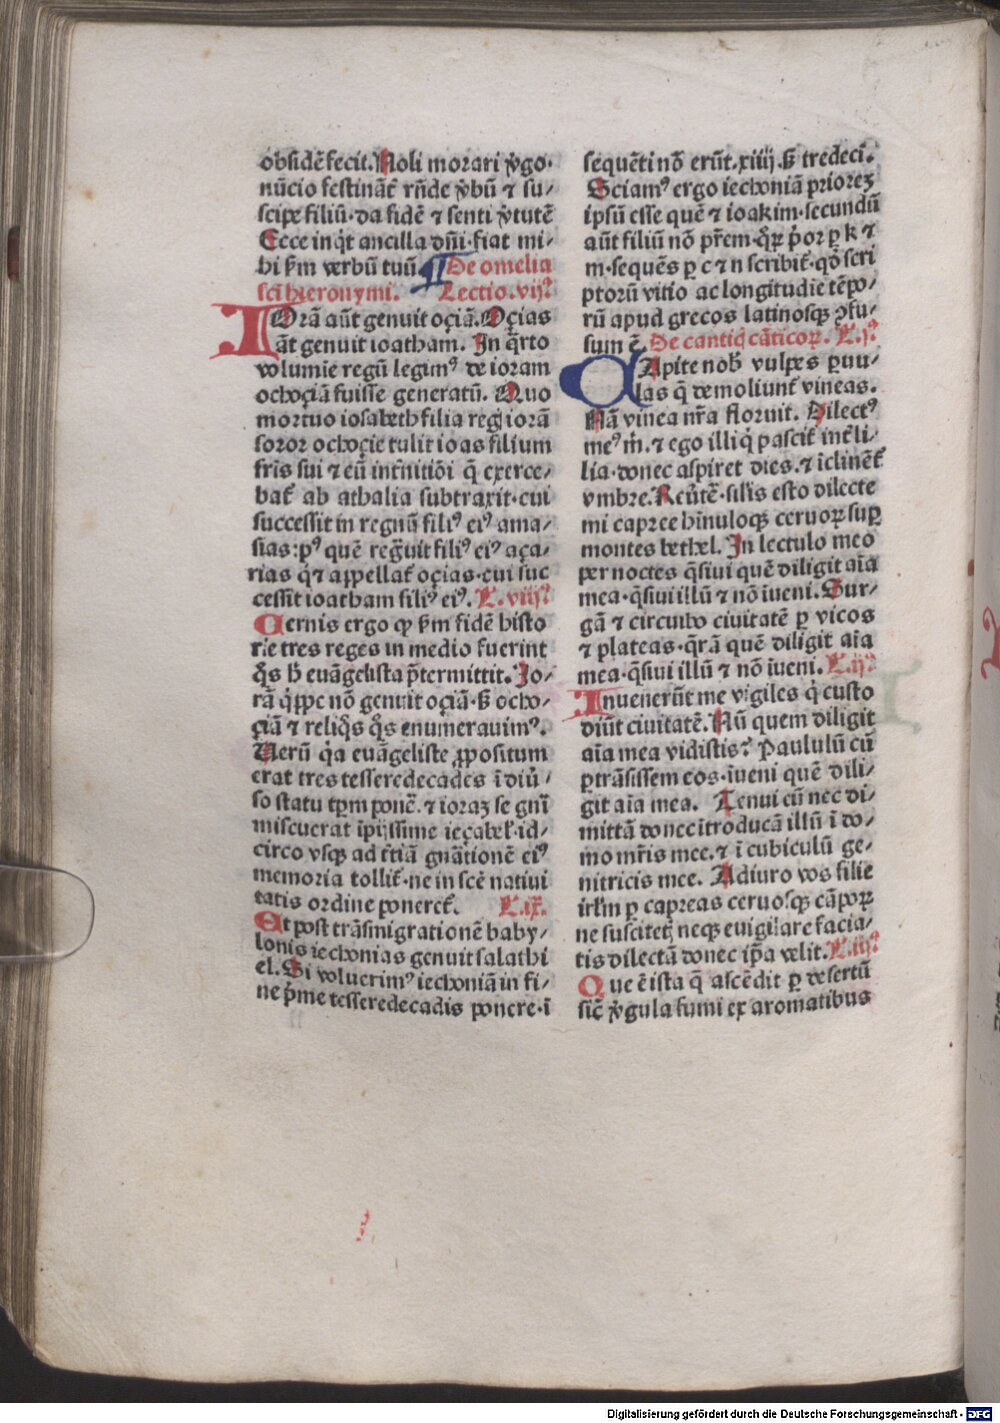 obsidē fecit. Noli morari v̓go·
nūcio festināt᷑ rn̄de v̓bū ⁊ su-
scipe filiū·da fidē ⁊ senti v̓tutē
Ecce inq̄t ancilla dn̄i·fiat mi-
hi ẜm verbū tuū. ¶ De omelia
sc̄i hieronymi. Lectio.vijᵃ
IOrā aūt genuit oçiā. Oçias
āt genuit ioatham. In q̄rto
volumīe regū legimꝰ de ioram
ochoçiā fuisse generatū. Quo
mortuo iosabeth filia reg̣ iorā
soror ochoçie tulit ioas filium
fr̄is sui ⁊ eū int᷑nitiōi q̄ exerce-
bat᷑ ab athalia subtraxit·cui
successit in regnū filiꝰ eiꝰ ama-
sias:pꝰ quē reg̈uit filiꝰ eiꝰ aça-
rias q̇ ⁊ appellat᷑ oçias·cui suc
cessit ioatham filiꝰ eiꝰ. L.viijᵃ
Cernis ergo ꝙ ẜm fidē histo
rie tres reges in medio fuerint
q̄s h̄ euāgelista p̄termittit. Jo-
rā q̇ppe nō genuit oçiā·ß ocho-
çiā ⁊ reliq̄s q̄s enumerauimꝰ.
Verū q̇a euāgeliste ꝓpositum
erat tres tesseredecades ī diu̓-
so statu tp̄m ponē. ⁊ ioraʒ se gn̄i
miscuerat īpijssime ieçabel᷑·id-
circo vsqꝫ ad t᷑tiā gn̄ationē eiꝰ
memoria tollit᷑·ne in scē natiui
tatis ordine poneret᷑. L.ix.
Et post trāsmigrationē baby-
lonis iechonias genuit salathi
el. Si voluerimꝰ iechoniā in fi-
ne p̓me tesseredecadis ponere·ī
sequēti nō erūt.xiiij.ß tredeci̅.
Sciamꝰ ergo iechoniā prioreʒ
ipsū esse quē ⁊ ioakim·secundū
aūt filiū nō pr̄em·q̄ꝝ p̓or ꝑ k ⁊
m·sequēs ꝑ c ⁊ n scribit᷑·qd̓ scri
ptorū vitio ac longitudīe tēpo-
rū apud grecos latinosqꝫ ꝯfu-
sum ē. De cantiq̇ cāticoꝝ. L.jᵃ
CApite nob̄ vulpes paruu-
las q̄ demoliunt᷑ vineas.
Nā vinea nr̄a floruit. Dilectꝰ
meꝰ m̓. ⁊ ego illi q̇ pascit᷑ int᷑ li-
lia·donec aspiret dies.⁊ īclinēt᷑
vmbre. Reu̓tē·sil̓is esto dilecte
mi capree hīnuloqꝫ ceruoꝝ suꝑ
montes bethel. In lectulo meo
per noctes q̄siui quē diligit aīa
mea·q̄siui illū ⁊ nō iueni. Sur-
gā ⁊ circuibo ciuitatē ꝑ vicos
⁊ plateas·q̄rā quē diligit aīa
mea·q̄siui illū ⁊ nō īueni. L.ijᵃ
Inuenerūt me vigiles q̇ custo
diūt ciuitatē. Nū quem diligit
aīa mea vidistis? Paululū cū
ꝑtrāsissem eos·īueni quē dili-
git aīa mea. Tenui eū nec di-
mittā donec ītroducā illū ī do-
mo mr̄is mee.⁊ ī cubiculū ge-
nitricis mee. Adiuro vos filie
irl̄m ꝑ capreas ceruosqꝫ cāpoꝝ
ne suscitetꝫ neqꝫ euigilare facia-
tis dilectā donec ip̄a velit. L.iijᵃ
Que ē ista q̄ ascēdit ꝑ desertū
sic᷑ v̓gula fumi ex aromatibus
Digitalisierung gefördert durch die Deutsche Forschungsgemeinschaft - DFG